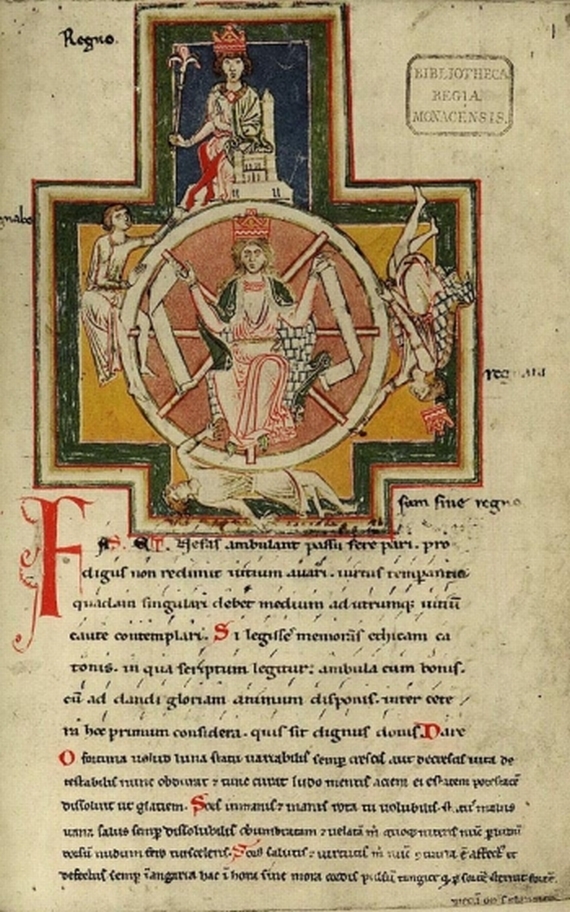 Regno.
BIBLIOTHECA
REGIA
MONACENSIS.
regnabo
regnaui
sum sine regno
Fas et nefas ambulant passu fere pari. pro
digus non redimit uitium auari. uirtus temperantia
quadam singulari debet medium ad utrumq; uitiū
caute contemplari. Si legisse memoras ethicam ca
tonis. in qua scriptum legitur: ambula cum bonis.
cū ad dandi gloriam animum disponis. inter cete
ra hoc primum considera. quis sit dignus donis. Dare
O fortuna uelud luna statu uariabilis semp crescis aut decrescis uita de
testabilis nunc obdurat ⁊ tunc curat ludo mentis aciem egestatem potestatē
dissoluit ut glaciem. Sors inmanis ⁊ inanis rota tu uolubilis status malus
uana salus semp dissolubilis obumbratam ⁊ uelatā
dorsū nudum fero tui sceleris. Sors salutis ⁊ uirtutis m̄ nūc ꝯtraria ē affect⁹ ⁊
defectus semp ī angaria hac ī hora sine mora